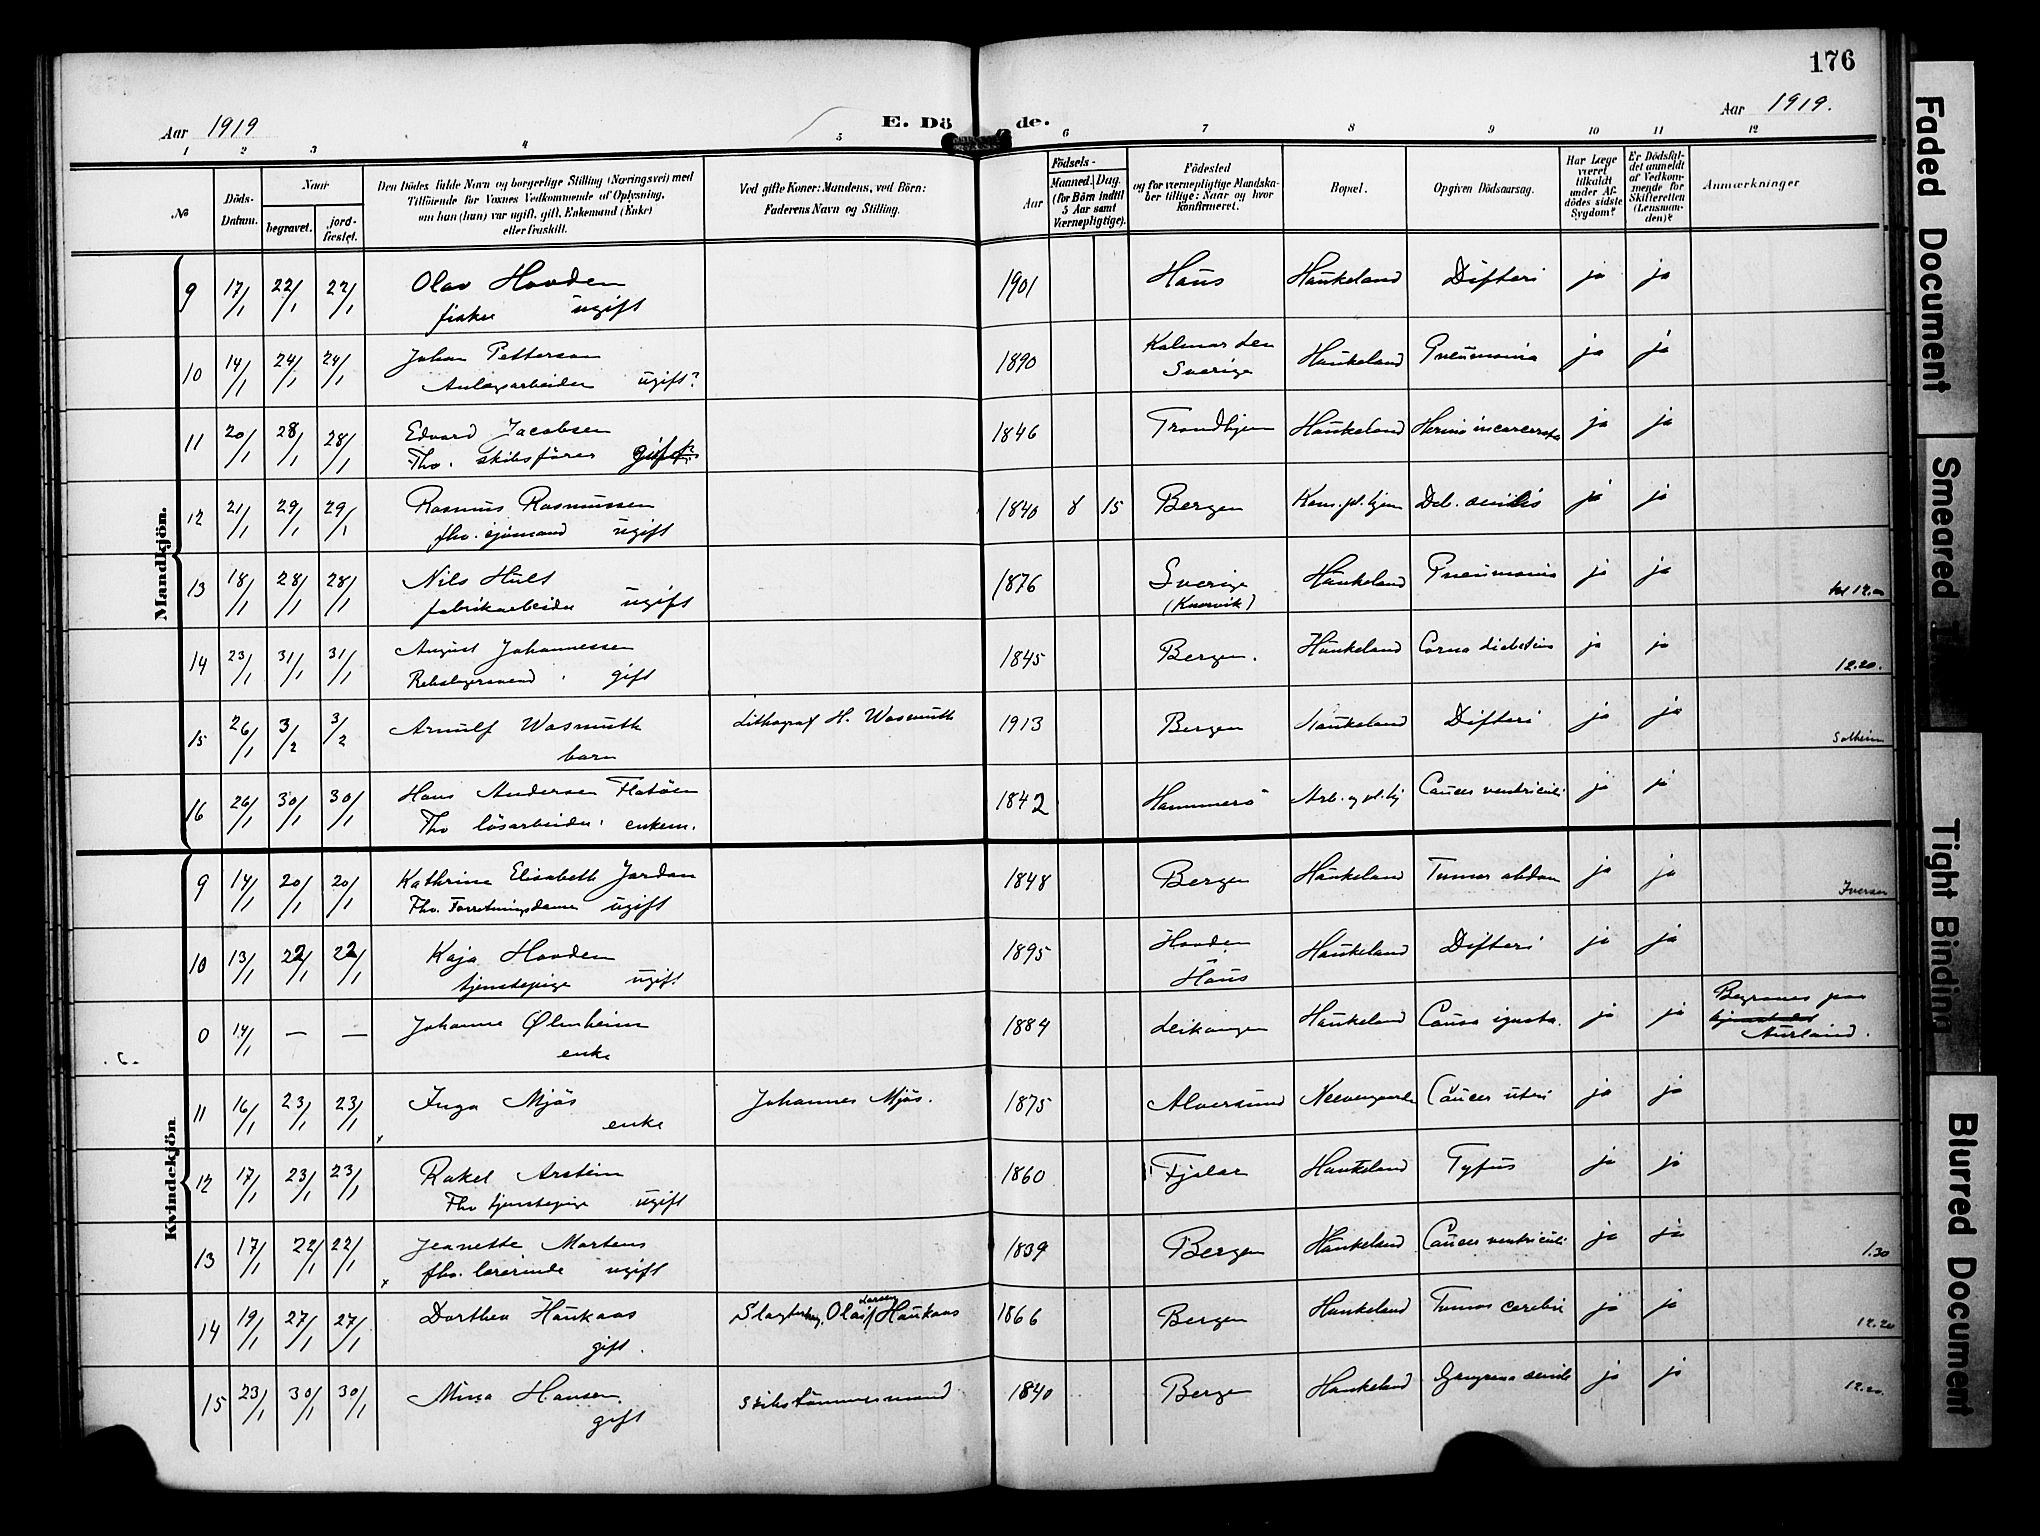 176
Aar 1919
E. Döde.
Aar 1919.
1 2 3 4 5 6 7 8 9 10 11 12
№
Döds-Datum.
Naar
begravet.
jord-fæstet.
Den Dödes fulde Navn og borgerlige Stilling (Næringsvei) med
Tilföiende for Voxnes Vedkommende af Oplysning,
om hun (han) var ugift, gift, Enkemand (Enke)
eller fraskilt.
Ved gifte Koner: Mandens, ved Börn:
Faderens Navn og Stilling.
Födsels-
Aar
Maaned. Dag.
(for Börn indtil
5 Aar samt
Værnepligtige).
Födested
og for værnepligtige Mandska-
ber tillige: Naar og hvor
konfirmeret.
Bopæl.
Opgiven Dödsaarsag.
Har Læge
været
tilkaldt
under Af-
dödes sidste
Sygdom?
Er Dödsfal-
det anmeldt
af Vedkom-
mende for
Skifteretten
(Lensman-
den)?
Anmærkninger
Mandkjön.
9 17/1 22/1 22/1 Olav Hovden 1901 Haus Haukeland Difteri ja ja
fisker ugift
10 14/1 24/1 24/1 Johan Petterson 1890 Kalmar len Haukeland Pneumonia ja ja
Anlægsarbeider ugift? Sverige
11 20/1 28/1 28/1 Edvard Jacobsen 1846 Trondhjem Haukeland Hernia incarcerata ja ja
Fhv. skibsfører gift
12 21/1 29/1 29/1 Rasmus Rasmussen 1840 8 15 Bergen Kom. pl. hjem Deb. senilis ja ja
fhv. sjømand ugift
13 18/1 28/1 28/1 Nils Hult 1876 Sverige Haukeland Pneumonia ja ja
fabrikarbeider ugift kl 12.
14 23/1 31/1 31/1 August Johannessen 1845 Bergen. Haukeland Coma diabeticum ja ja 12.20.
Rebslagersvend gift
15 26/1 3/2 3/2 Arnulf Wasmuth Lithograf H. Wasmuth 1913 Bergen Haukeland Difteri ja ja Solheim
barn
16 26/1 30/1 30/1 Hans Andersen Flatöen 1842 Hammerö Arb. og pl. hj Cancer ventriculi ja ja
Fhv løsarbeider. enkem.
Kvindekjön
9 14/1 20/1 20/1 Kathrine Elisabeth Jordan 1848 Bergen Haukeland Tumor abdom ja ja Iversen
Fhv. Forretningsdame ugift
10 13/1 22/1 22/1 Kaja Hovden 1895 Hovden Haukeland Difteri ja ja
tjenstepige ugift Haus
0 14/1 — — Johanne Ølmheim 1884 Leikanger Haukeland Causa ignota. ja ja Begraves paa
enke Aurland.
.6.
11 16/1 23/1 23/1 Inga Mjös Johannes Mjös. 1875 Alversund Neevengaarden Cancer uteri ja ja
x enke
12 17/1 23/1 23/1 Rakel Arstein 1860 Fjelar Haukeland Tyfus ja ja
Fhv tjenstepige ugift
13 17/1 22/1 22/1 Jeanette Martens 1839 Bergen Haukeland Cancer ventriculi ja ja 1.30
x fhv. lærerinde ugift
14 19/1 27/1 27/1 Dorthea Haukaas Olaf Larsen Haukaas 1866 Bergen Haukeland Tumor cerebri ja ja 12.20
gift.
15 23/1 30/1 30/1 Mina Hansen Skibstømmermand 1840 Bergen Haukeland Gangrena senile ja ja 12.20.
gift
Faded Document
Smeared
Tight Binding
Blurred Document